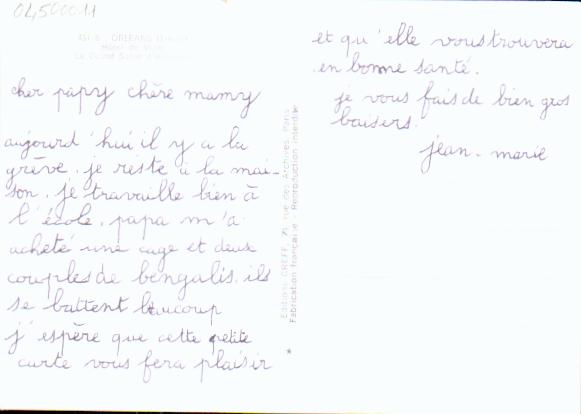 04500011
451-8 - ORLEANS (Loiret)
Hôtel de Ville
Le Grand Salon d'Honneur
cher papy chère mamy
aujourd'hui il y a la
grève. je reste à la mai-
son. je travaille bien à
l'école. papa m'a
acheté une cage et deux
couples de bengalis. ils
se battent beaucoup
j'espère que cette petite
carte vous fera plaisir
et qu'elle vous trouvera
en bonne santé.
je vous fais de bien gros
baisers.
jean-marie
Editions GREFF, rue des Archives, Paris
Fabrication française - Reproduction interdite